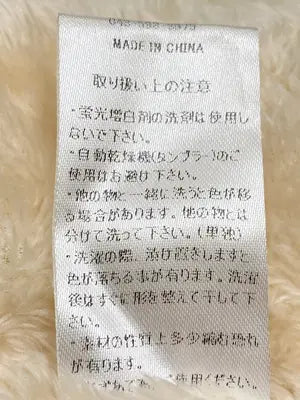 MADE IN CHINA
取り扱い上の注意
・蛍光増白剤の洗剤は使用し
ないで下さい。
・自動乾燥機(タンブラー)のご
使用はお避け下さい。
・他の物と一緒に洗うと色が移
る場合があります。他の物とは
分けて洗って下さい。(単独)
・洗濯の際、漬け置きしますと
色が落ちる事が有ります。洗濯
後はすぐに形を整えて干して下
さい。
・素材の性質上多少縮む恐れ
が有ります。
使用ください。